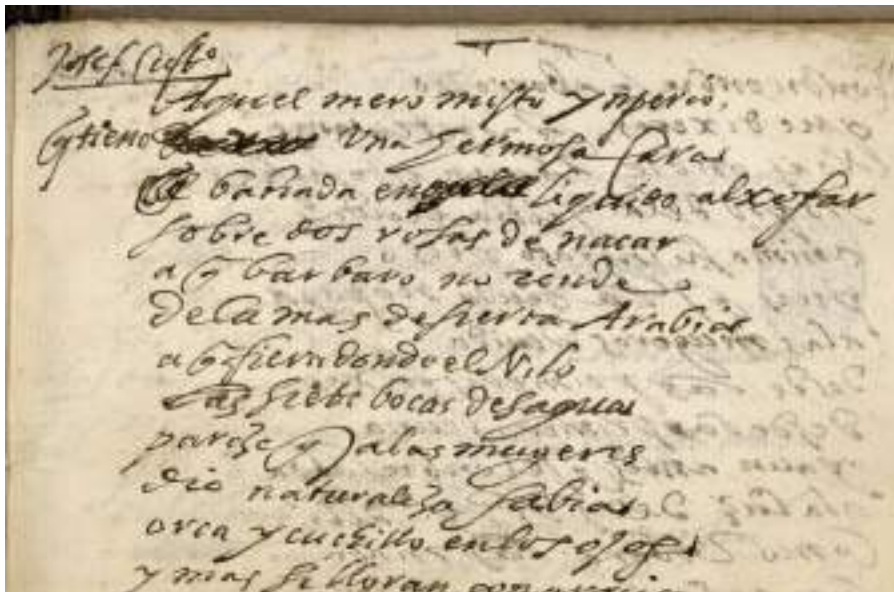 Josef.
Aquel mero misto ynperio
q tiene una hermosa cara
bañada en liquido alxofar
sobre dos rosas de nacar
a q barbaro no rende
de la mas desierta Arabia
a q fiera donde el Nilo
las siete bocas desagua
pareze q a las mugeres
dio naturaleza sabia
orca y cuchillo en los ojos
y mas si lloran con